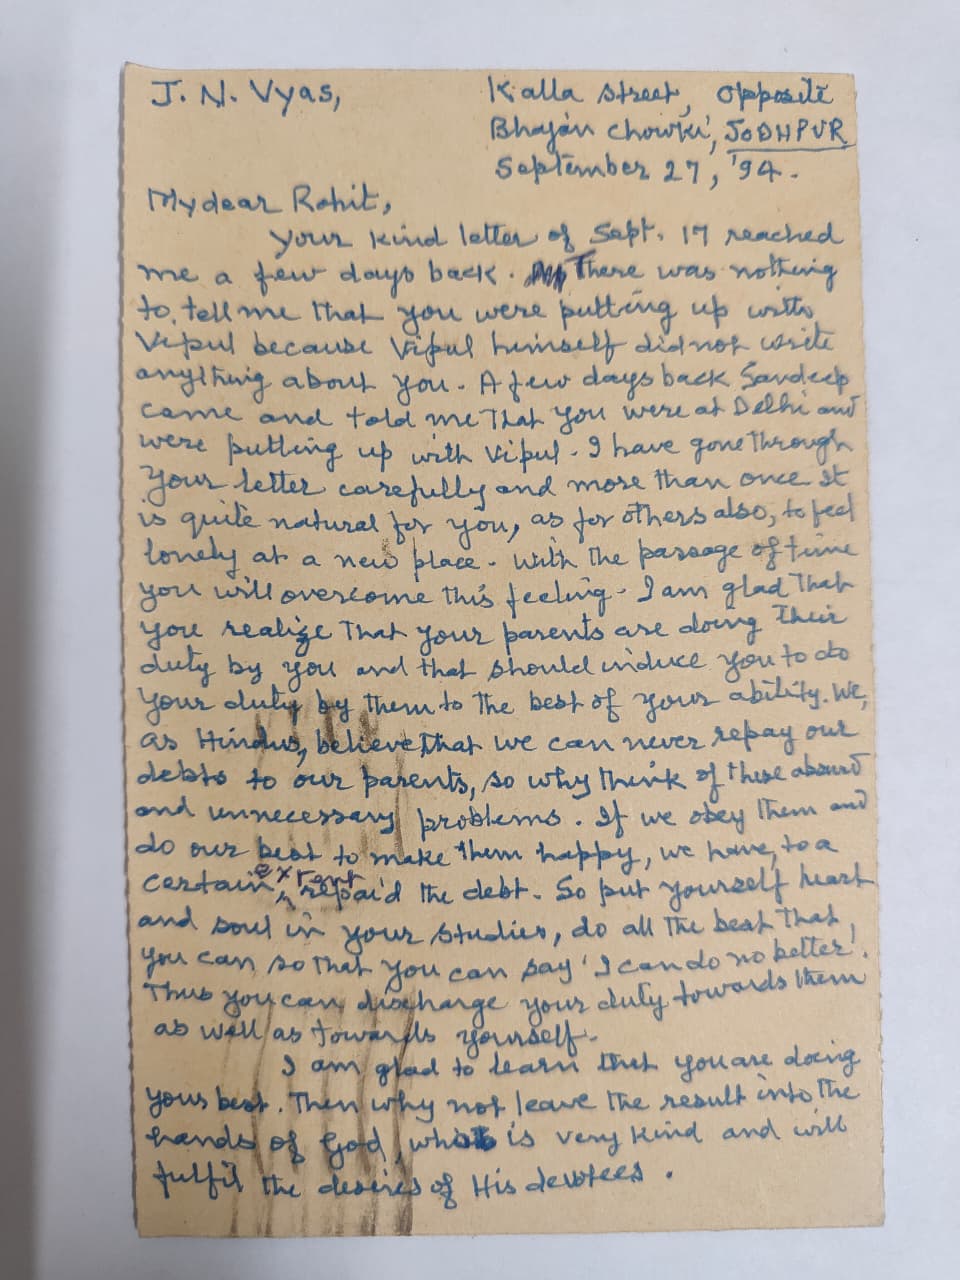 J. N. Vyas,
Kalla Street, Opposite
Bhajan Chowki, JODHPUR
September 27, '94.
My dear Rohit,
Your kind letter of Sept. 17 reached
me a few days back. There was nothing
to tell me that you were putting up with
Vipul because Vipul himself did not write
anything about you. A few days back Sandeep
came and told me that you were at Delhi and
were putting up with Vipul. I have gone through
your letter carefully and more than once It
is quite natural for you, as for others also, to feel
lonely at a new place. With the passage of time
you will overcome this feeling. I am glad that
you realize that your parents are doing their
duty by you and that should induce you to do
your duty by them to the best of your ability. We,
as Hindus, believe that we can never repay our
debts to our parents, so why think of these absurd
and unnecessary problems. If we obey them and
do our best to make them happy, we have, to a
certain extent, repaid the debt. So put yourself heart
and soul in your studies, do all the best that
you can so that you can say 'I can do no better'.
Thus you can discharge your duty towards them
as well as towards yourself.
I am glad to learn that you are doing
your best. Then why not leave the result into the
hands of God, who is very kind and will
fulfil the desires of His devotees.